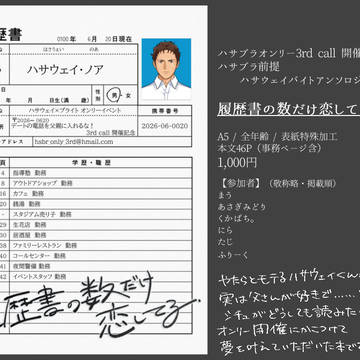 履歴書
0100 年 6月 20日現在
はさうぇい のあ
ハサウェイ・ノア
年 月 日生(満 歳)
性別
男・女
ハサウェイ×ブライト オンリーイベント
携帯番号
〒2026-0620
デートの電話を父親に入れるな!
3rd call 開催記念
2026-06-0020
メールアドレス
hsbr only 3rd@hmail.com
学歴・職歴
4 指導塾 勤務
8 アウトドアショップ 勤務
16 カフェ 勤務
20 銭湯 勤務
- スタジアム売り子 勤務
29 生花店 勤務
30 居酒屋 勤務
38 ファミリーレストラン 勤務
40 コールセンター 勤務
41 夜間警備 勤務
42 イベントスタッフ 勤務
履歴書の数だけ
恋してる
ハサブラオンリー3rd call 開催
ハサブラ前提
ハサウェイバイトアンソロジ
履歴書の数だけ恋して
A5 / 全年齢 / 表紙特殊加工
本文46P(事務ページ含)
1,000円
【参加者】(敬称略・掲載順)
まう
あさぎみどり
くかばち。
にら
たじ
ふりーく
やたらとモテるハサウェイくん
実は父さんが好きで……
シチュがどうしても読みた
オンリー開催にかこつけて
夢を叶えていただいた本で